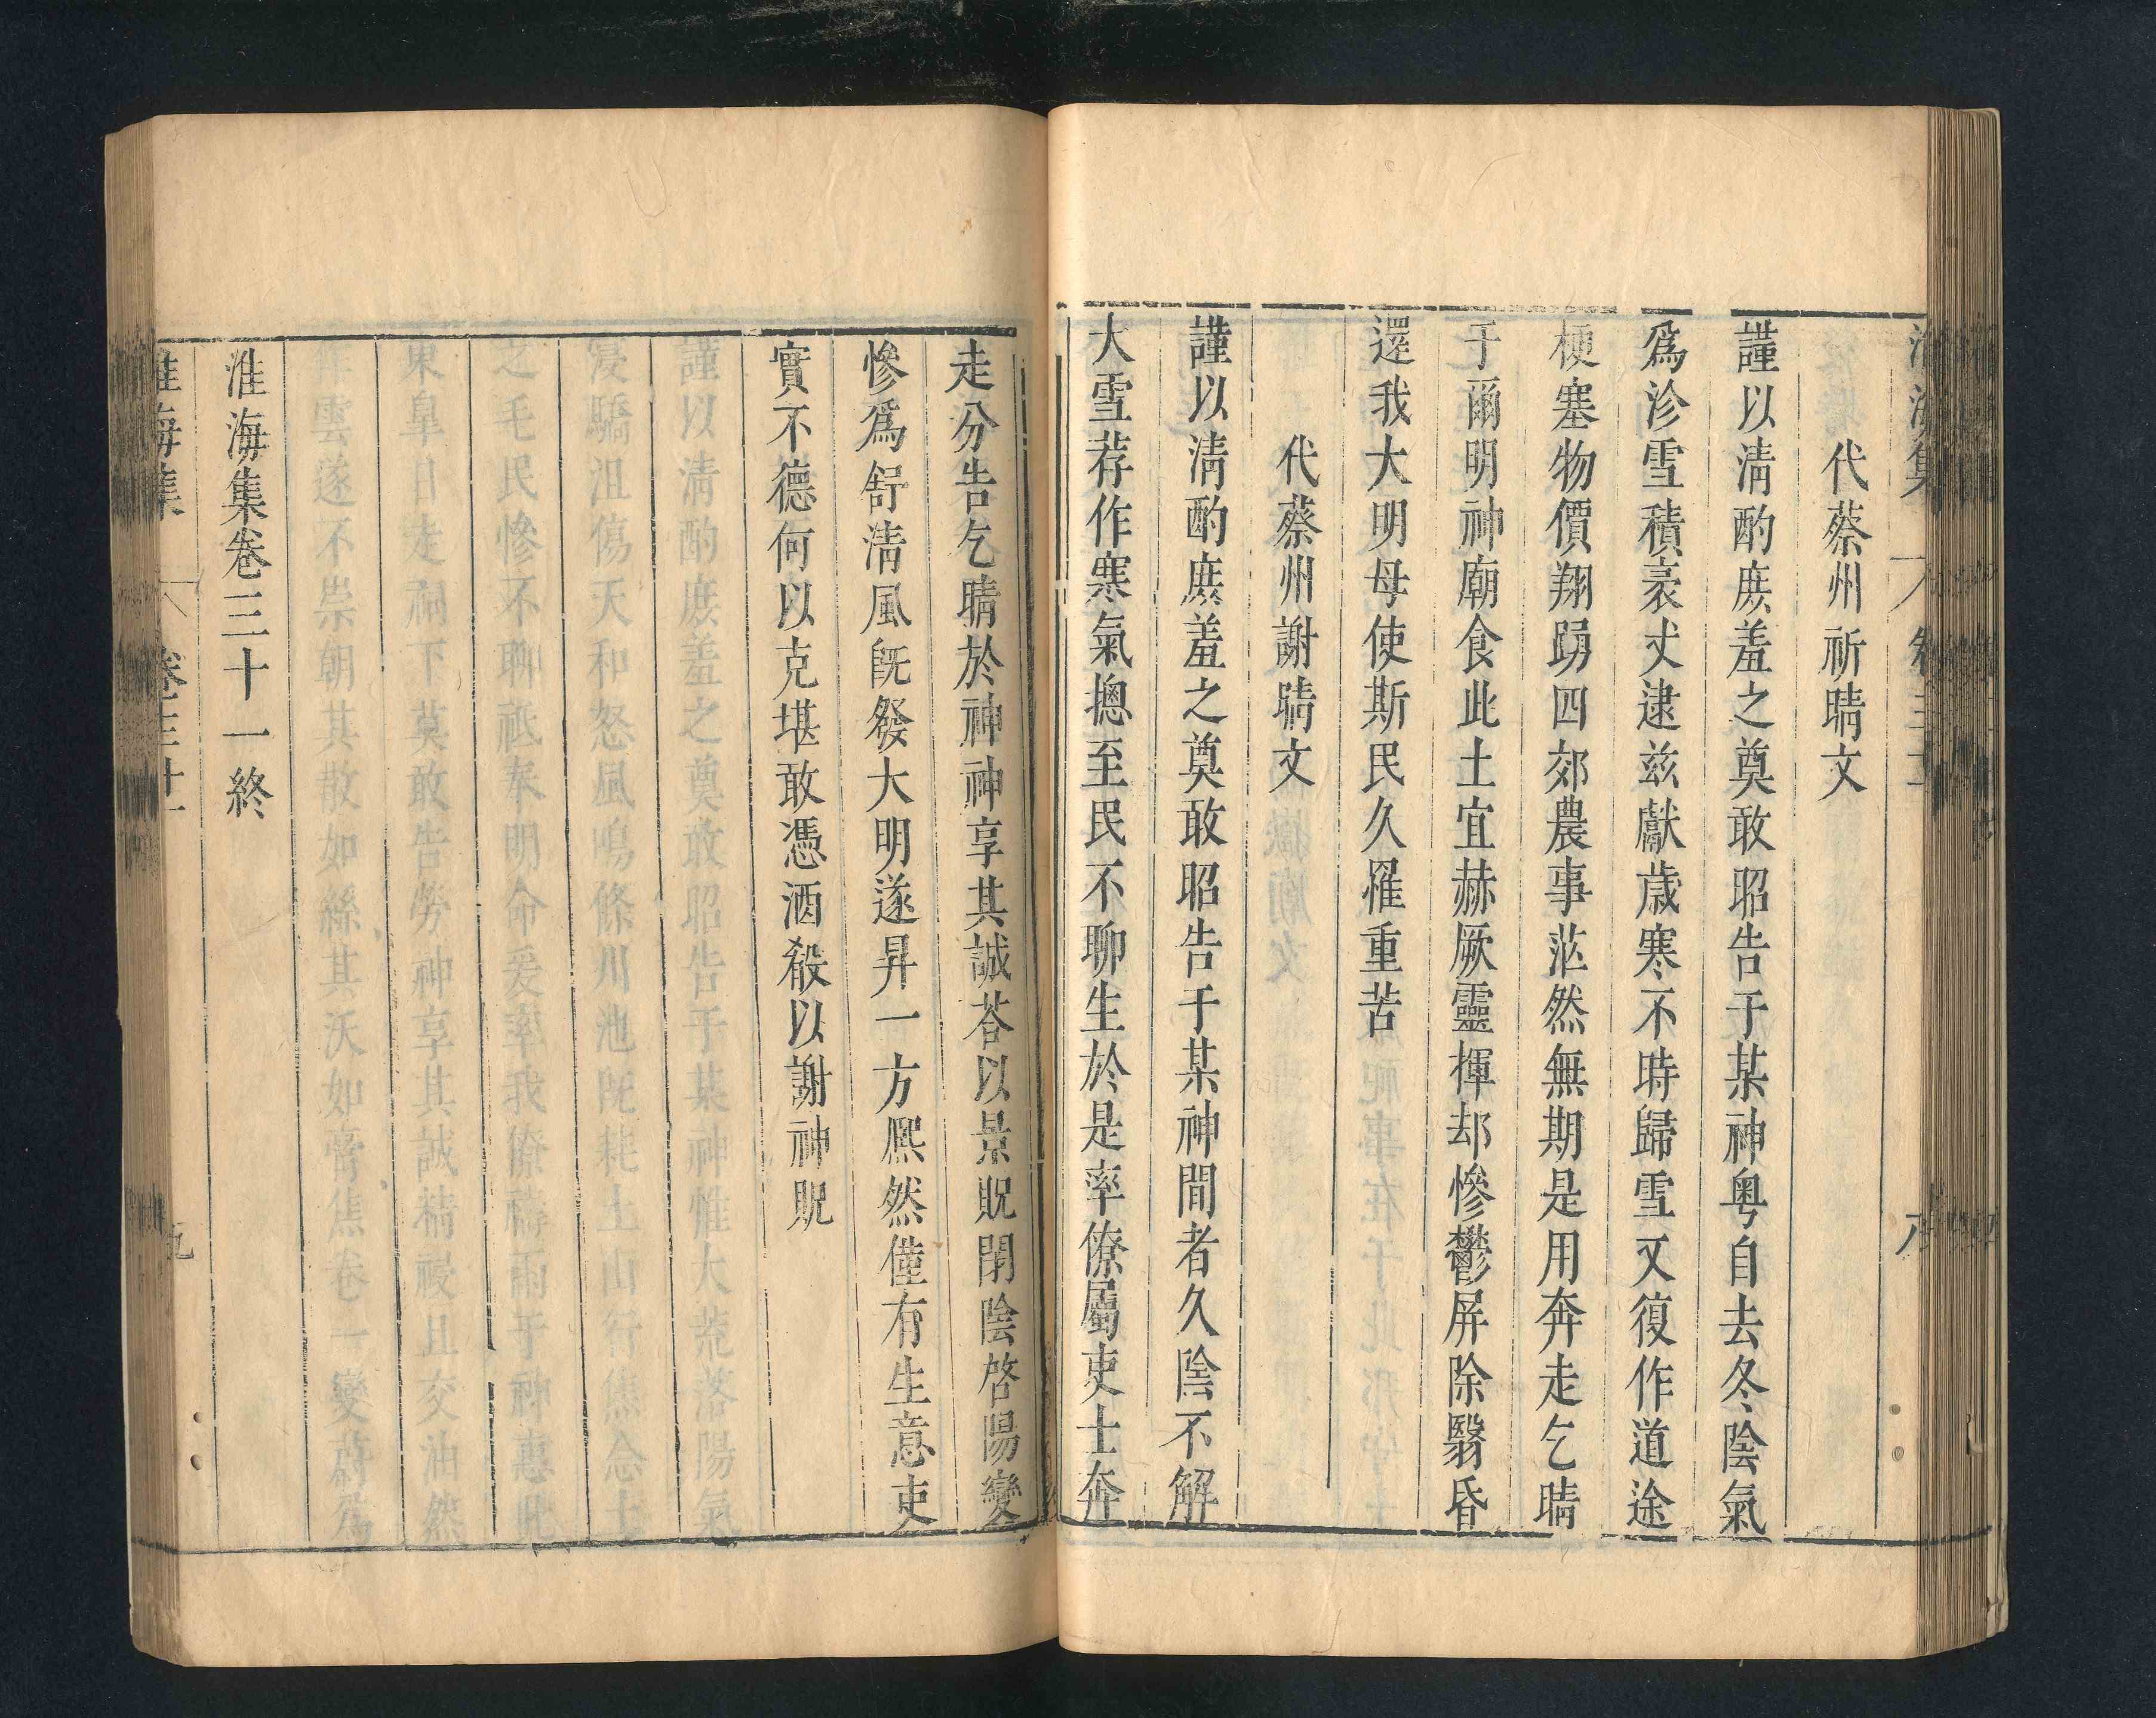 代蔡州祈晴文
謹以清酌庶羞之奠敢昭告于某神粤自去冬陰氣
爲沴雪積袤丈逮兹獻歲寒不時歸雪又復作道途
梗塞物價翔踴四郊農事茫然無期是用奔走乞晴
于爾明神廟食此土宜赫厥靈揮却慘鬱屏除翳昏
還我大明毋使斯民久罹重苦
代蔡州謝晴文
謹以清酌庶羞之奠敢昭告于某神間者久陰不解
大雪荐作寒氣摠至民不聊生於是率僚屬吏士奔
走分告乞晴於神神享其誠荅以景貺閉陰啓陽變
慘爲舒清風旣發大明遂昇一方熈然僅有生意吏
實不德何以克堪敢憑酒殽以謝神貺
淮海集卷三十一終
淮海集 卷三十一 九